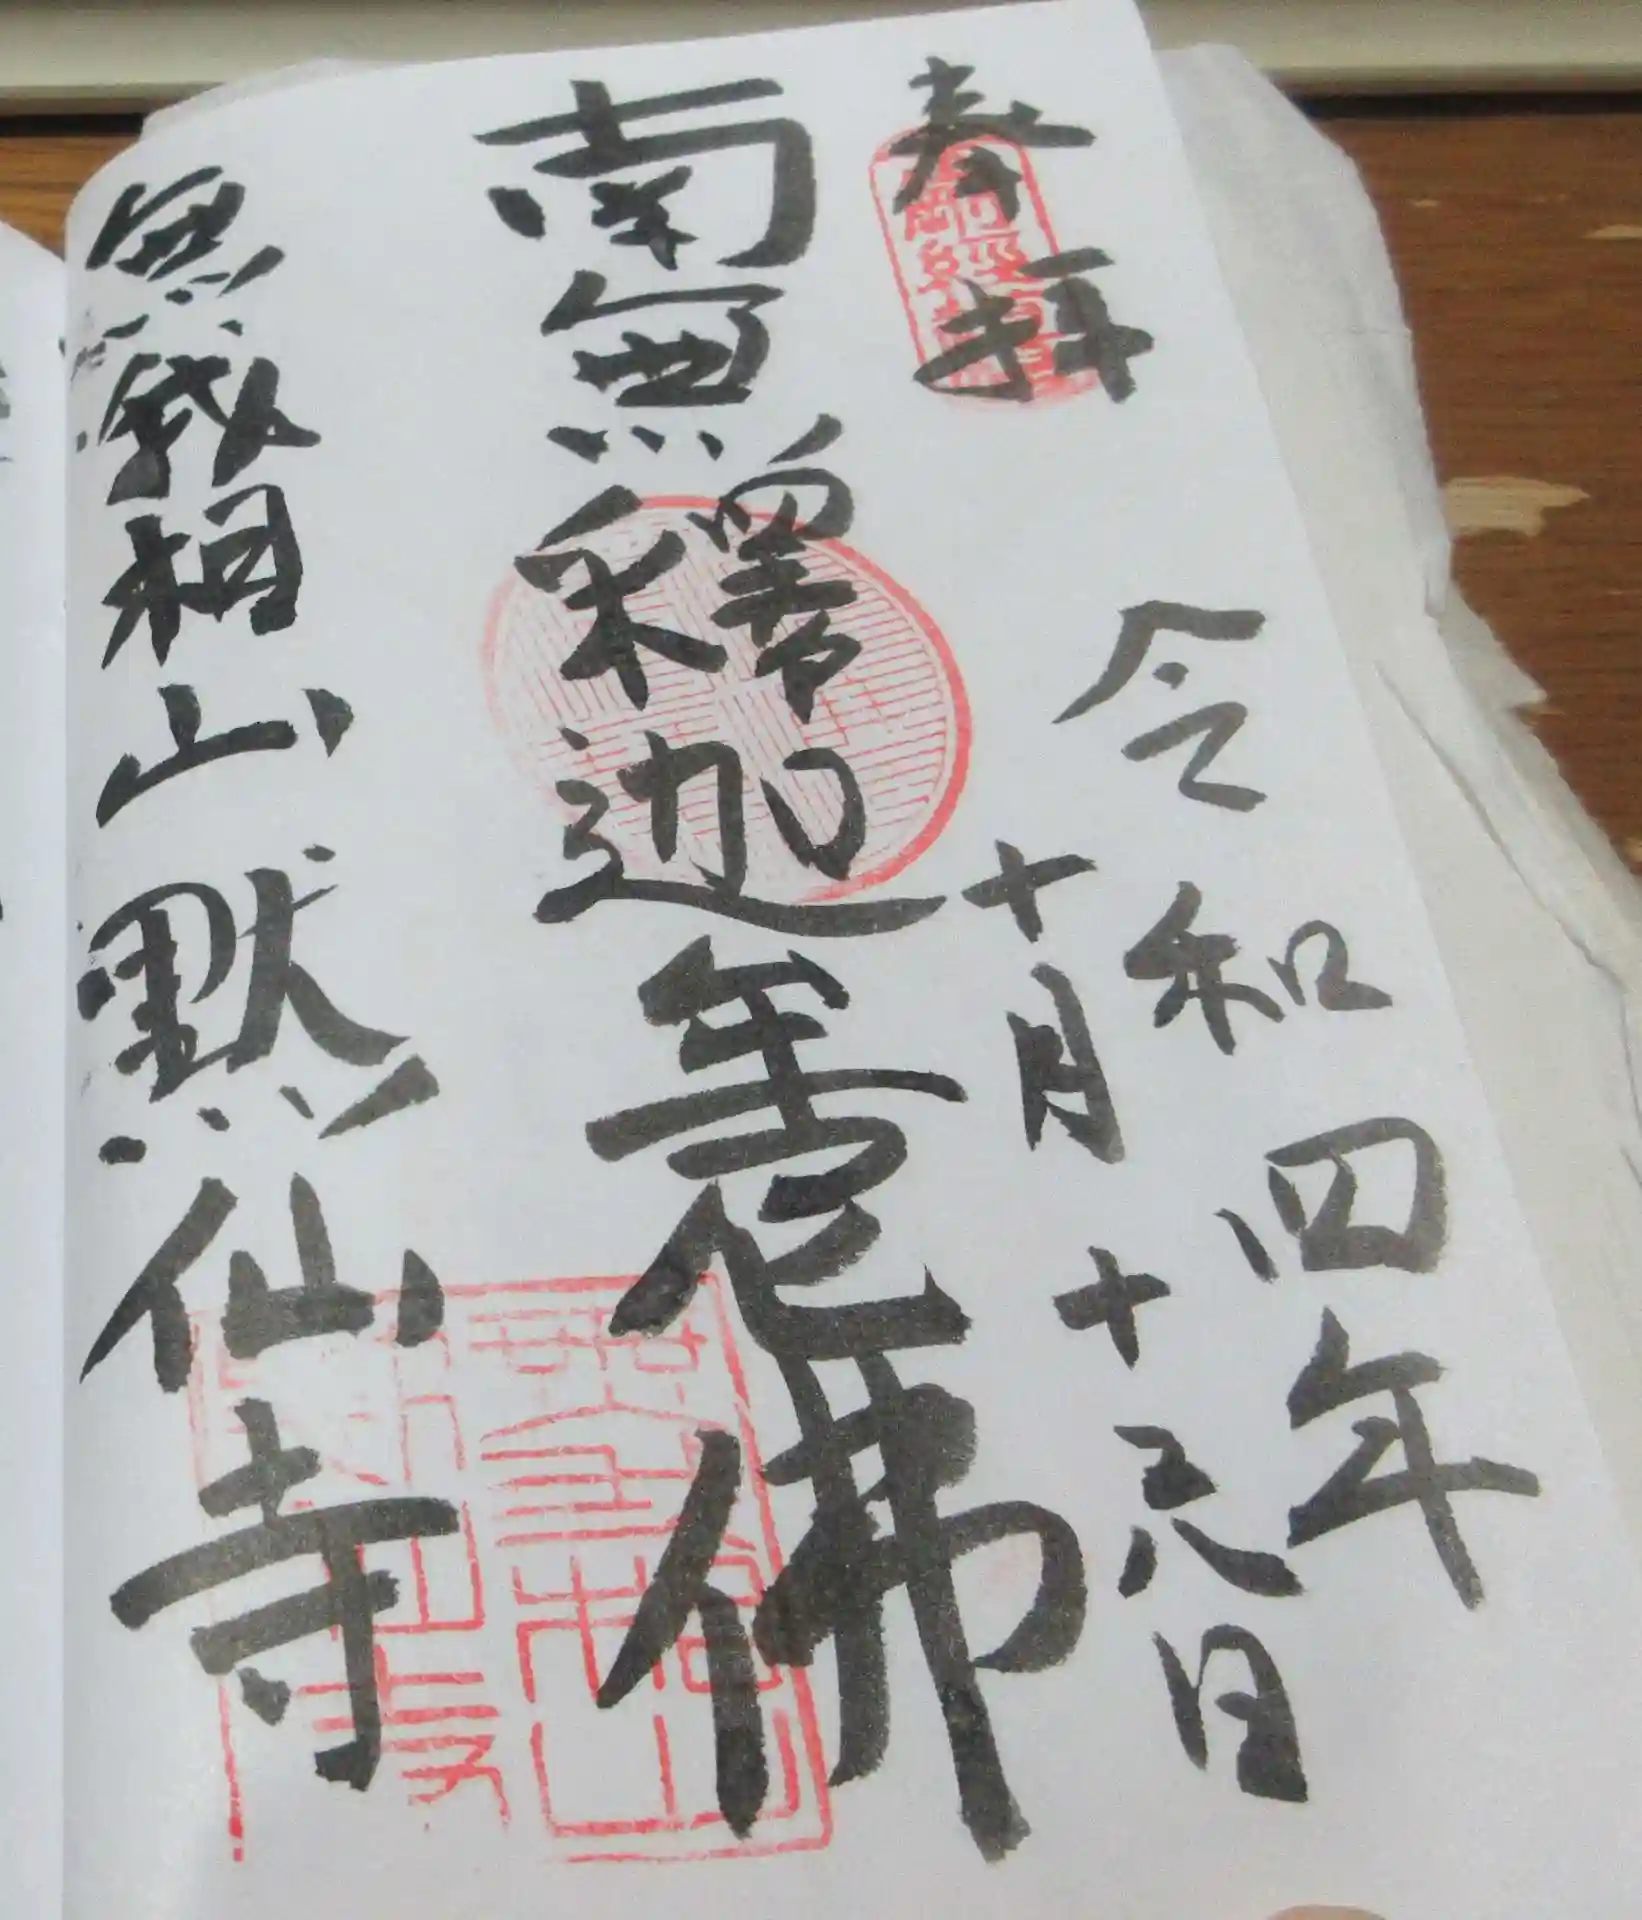 奉拝
令和四年
十月十六日
南無釋迦牟尼佛
無我相山默仙寺